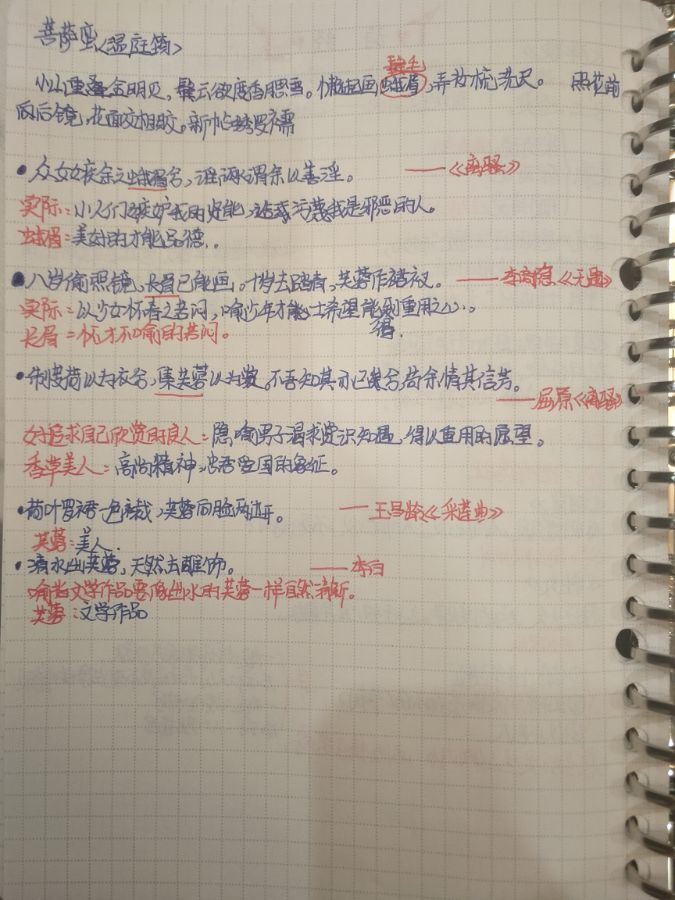 菩萨蛮<温庭筠>
眉毛
小山重叠金明灭，鬓云欲度香腮雪。懒起画蛾眉，弄妆梳洗迟。 照花前
后镜，花面交相映。新帖绣罗襦
• 众女嫉余之蛾眉兮，谣诼谓余以善淫。 ——《离骚》
实际：小人们嫉妒我的好能，造谣污蔑我是邪恶的人。
蛾眉：美好的才能品德..
• 八岁偷照镜，长眉已能画。十岁去踏青，芙蓉作裙衩。 ——李商隐《无题》
实际：以少女怀春之苦闷，喻少年才能士希望能到重用之心..
得.
长眉 = 怀才不喻的苦闷。
• 制芰荷以为衣兮，集芙蓉以为裳。不吾知其亦已矣兮，苟余情其信芳。
——屈原《离骚》
好追求自己欣赏的良人：隐喻男子渴求赏识知遇，得以重用的愿望。
香草美人：高尚精神，忠君爱国的象征。
• 荷叶罗裙一色裁，芙蓉向脸两边开。 ——王昌龄《采莲曲》
芙蓉：美人.
• 清水出芙蓉，天然去雕饰。 ——李白
喻指文学作品要像出水的芙蓉一样自然清新。
芙蓉：文学作品